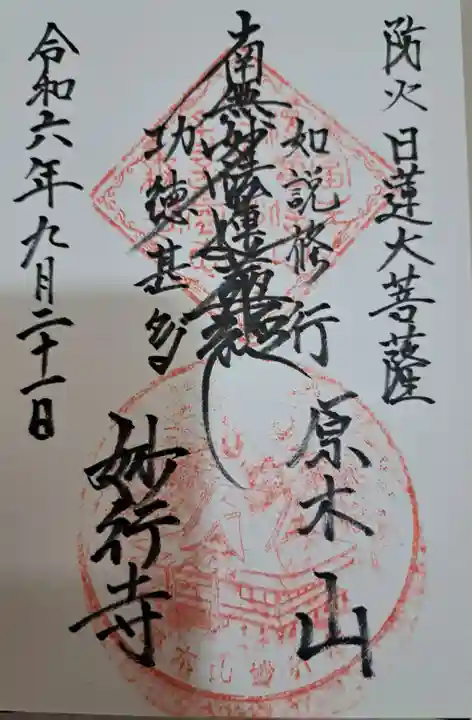 防火日蓮大菩薩
如説修行
原木山
南無妙法蓮華経
功徳甚多
妙行寺
令和六年九月二十一日